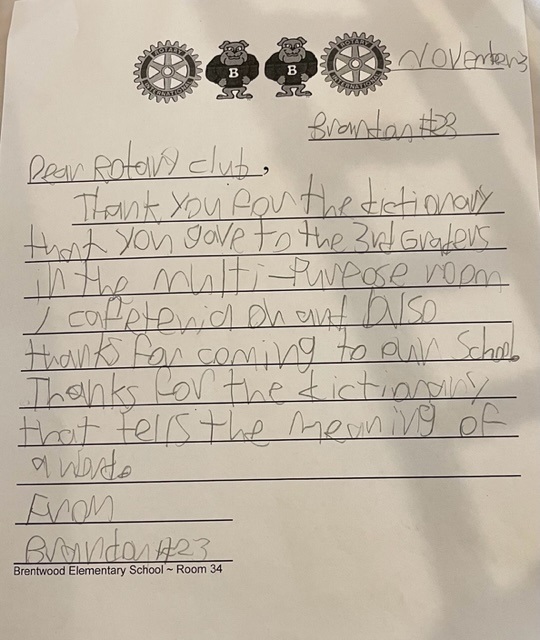 ROTARY INTERNATIONAL B B ROTARY INTERNATIONAL November 3
Brandon #23
Dear Rotary club,
Thank you for the dictionary
that you gave to the 3rd Graders
in the multi-Purpose room
/ cafeteria oh and also
thanks for coming to our School.
Thanks for the dictionary
that tells the meaning of
a word.
From
Brandon #23
Brentwood Elementary School ~ Room 34